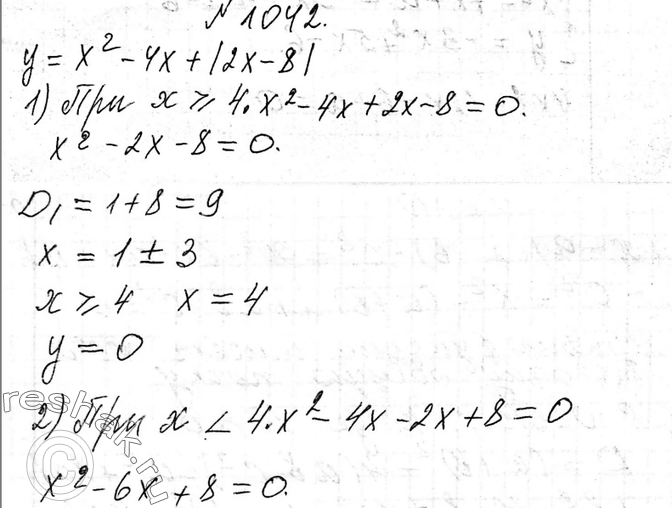 № 1042.
y = x² - 4x + |2x - 8|
1) При x ⩾ 4. x² - 4x + 2x - 8 = 0.
x² - 2x - 8 = 0.
D₁ = 1 + 8 = 9
x = 1 ± 3
x ⩾ 4 x = 4
y = 0
2) При x < 4. x² - 4x - 2x + 8 = 0
x² - 6x + 8 = 0.
reshak.ru